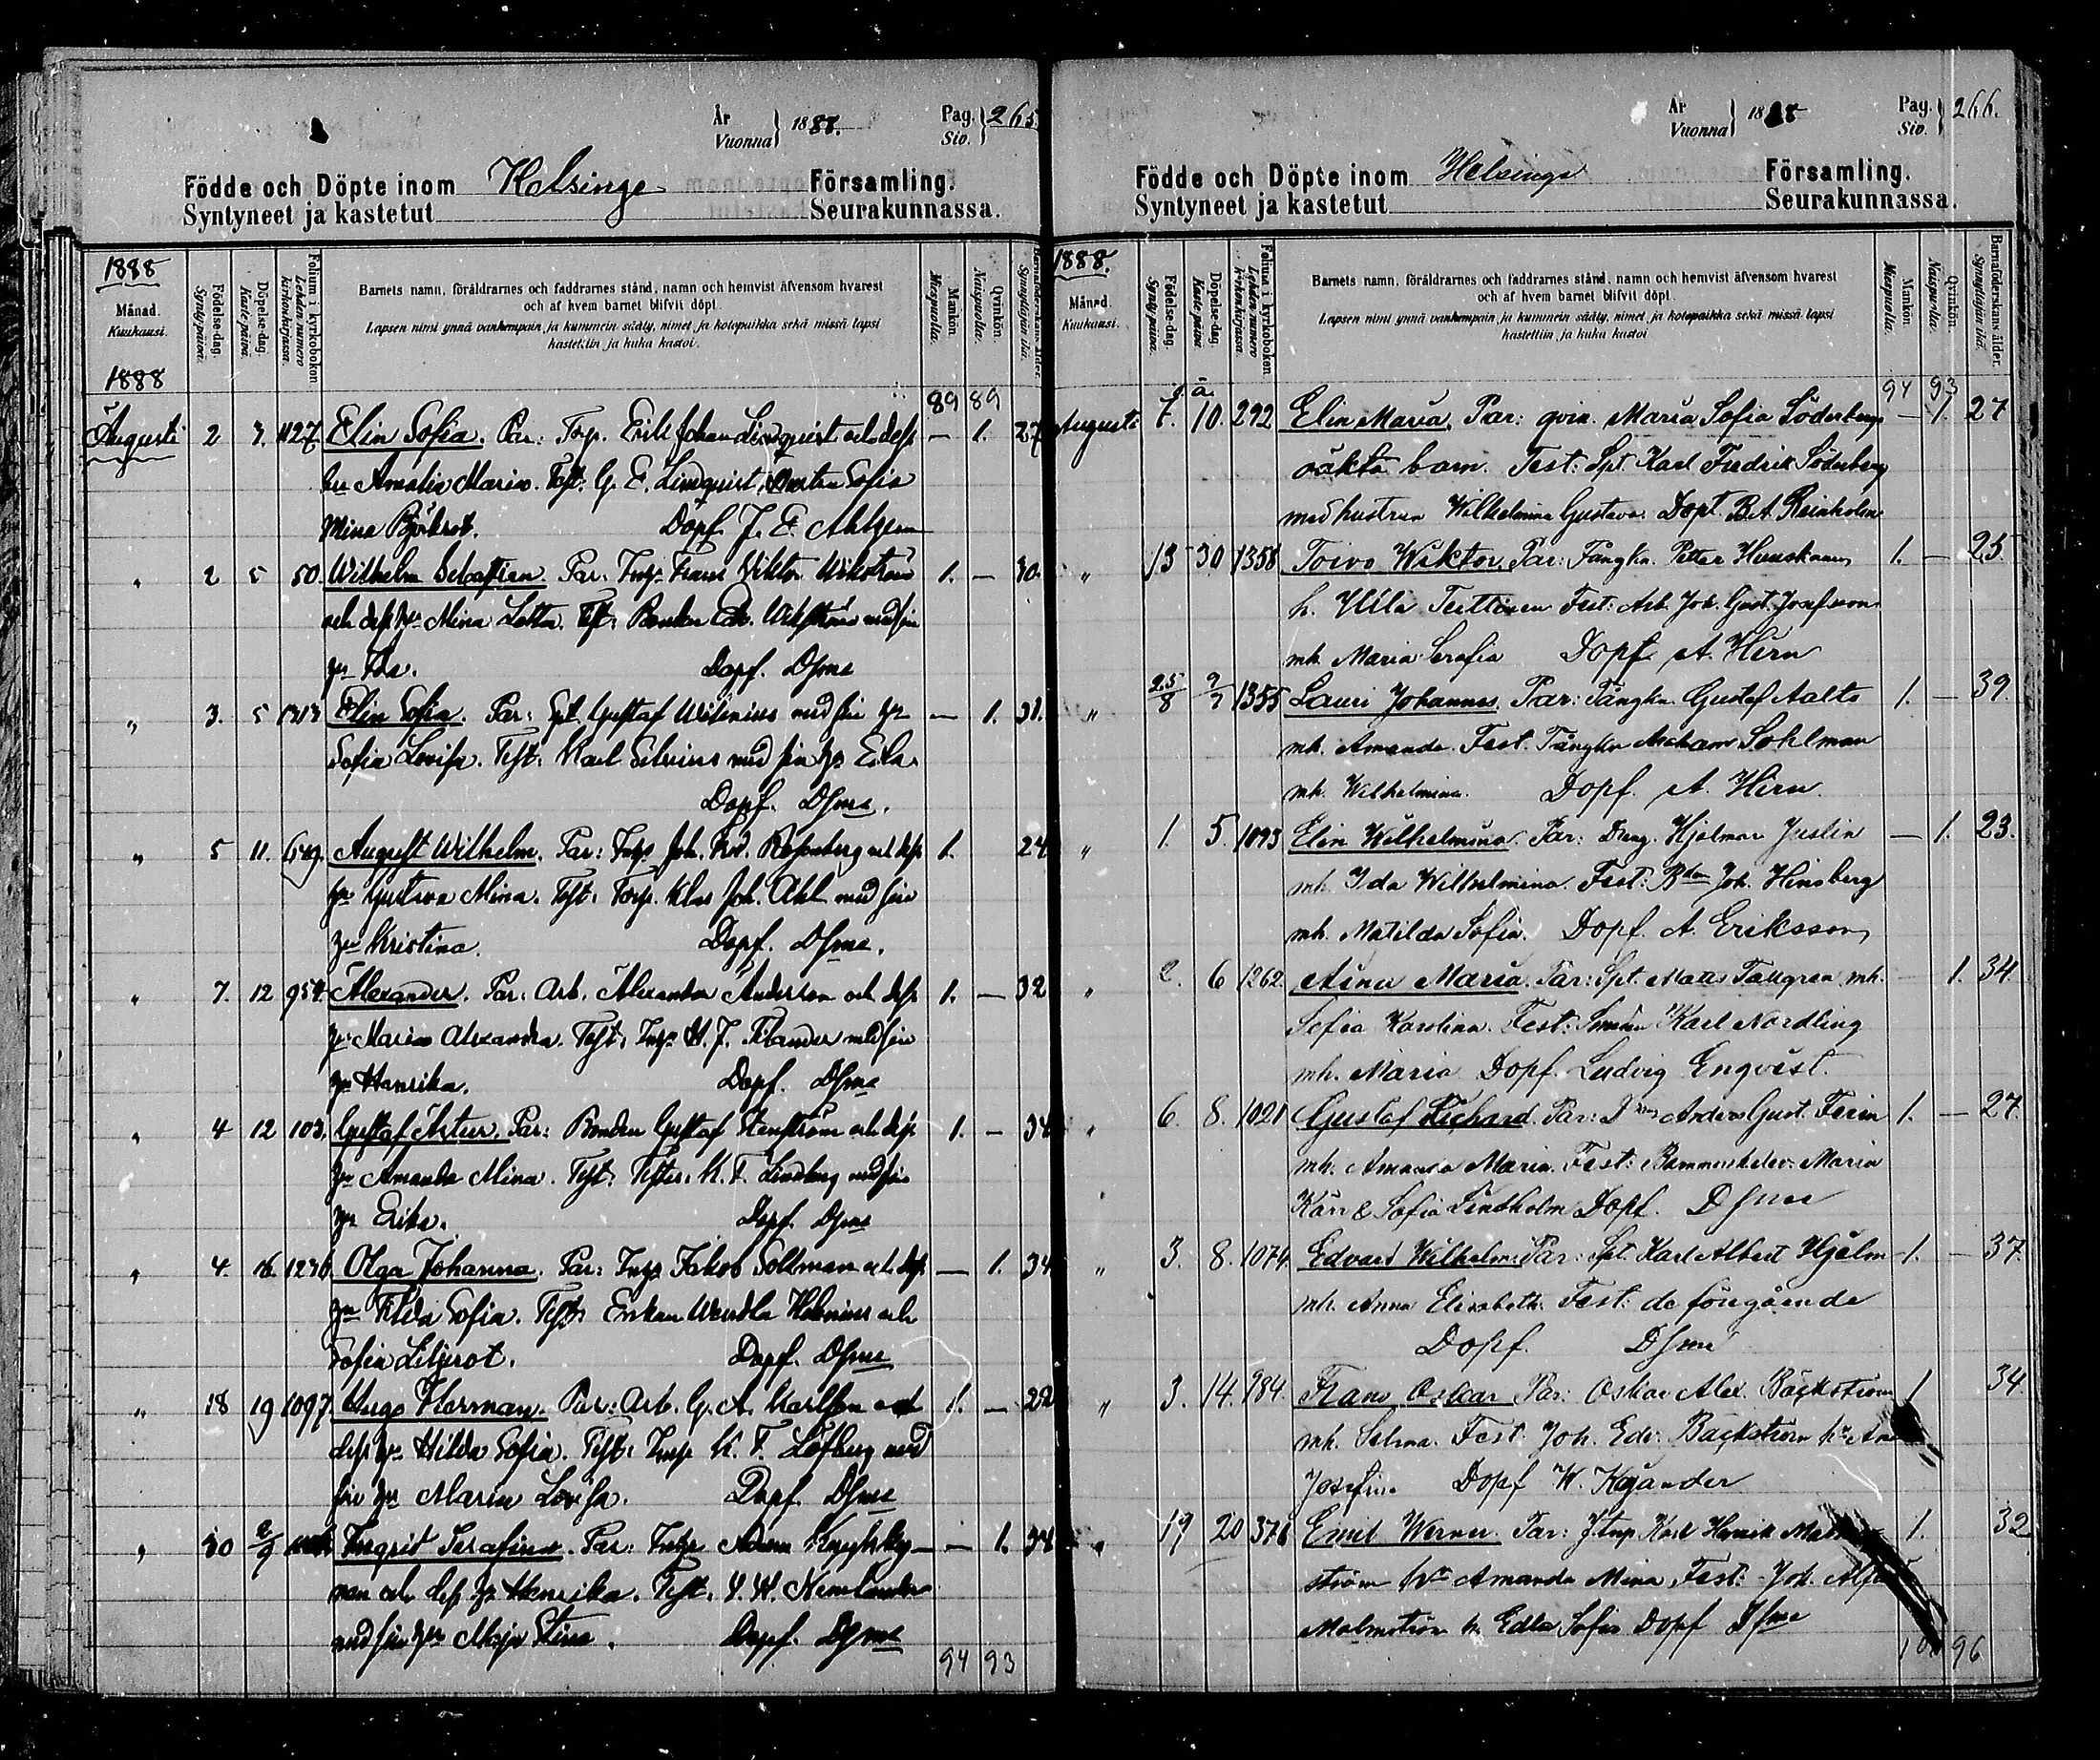 År
Vuonna
1888.
Pag.
Siv.
265.
Födde och Döpte inom Helsinge Församling.
Syntyneet ja kastetut Seurakunnassa.
1888
Månad.
Kuukausi.
1888
Födelse-dag.
Synty päivä.
Döpelse-dag.
Kaste päivä.
Folium i kyrkobokon
Lehden numero
kirkonkirjassa.
Barnets namn, föräldrarnes och faddrarnes stånd, namn och hemvist äfvensom hvarest
och af hvem barnet blifvit döpt.
Lapsen nimi ynnä vanhempain ja kummein sääty, nimet ja kotopaikka sekä missä lapsi
kastettiin ja kuka kastoi.
Mankön.
Miespuolta.
Qvinkön.
Naispuolta.
Barnaföderskans ålder.
Synnyttäjän ikä.
89 89
Augusti 2 3. 1127. Elin Sofia. Par: Torp. Erik Johan Lindquist och dess — 1. 27
hu Amalia Maria. Test: G. E. Lindquist, Sofia
Mina Döpf. J. E. Ahlgren
" 2 5 50. Wilhelm Sebastian. Par. Frans Viktor Wikström 1. — 30.
och dess hu Mina Lotta. Test: Bonden med sin
hu Ida. Döpf. Dsme
" 3. 5 1313 Elin Sofia. Par: Spt. Gustaf med sin hu — 1. 31.
Sofia Lovisa. Test: Karl med sin hu
Döpf. Dsme.
" 5 11. 649. August Wilhelm. Par: Joh. Rosenberg och dess 1. 24
hu Gustava Mina. Test: Torp. Klas Joh. Ahl med sin
hu Kristina. Döpf. Dsme.
" 7. 12 954. Alexander. Par: Arb. Alexander Anderson och dess 1. — 32
hu Maria Alexandra. Test: med sin
hu Henrika. Döpf. Dsme
" 4 12 103. Gustaf Artur. Par: Bonden Gustaf Stenström och dess 1. — 34
hu Amanda Mina. Test: K. F. Lindberg med sin
hu Erika. Döpf. Dsme
" 4. 16. 1236. Olga Johanna. Par: Jakob Sollman och dess — 1. 34
hu Tilda Sofia. Test: Enkan Wendla och
Sofia Liljerot. Döpf. Dsme
" 18 19 1097. Hugo Herman. Par: Arb. G. A. Karlsson och 1. — 22
dess hu Hilda Sofia. Test: K. F. Löfberg med
sin hu Maria Lovisa. Döpf. Dsme
" 30 2/9 Ingrid Serafina. Par: Adam — 1. 34
man och dess hu Henrika. Test:
med sin hu Maja Stina. Döpf. Dsme
94 93
År
Vuonna
1888
Pag.
Siv.
266.
Födde och Döpte inom Helsinge Församling.
Syntyneet ja kastetut Seurakunnassa.
1888.
Månad.
Kuukausi.
Födelse-dag.
Synty päivä.
Döpelse-dag.
Kaste päivä.
Folium i kyrkobokon
Lehden numero
kirkonkirjassa.
Barnets namn, föräldrarnes och faddrarnes stånd, namn och hemvist äfvensom hvarest
och af hvem barnet blifvit döpt.
Lapsen nimi ynnä vanhempain ja kummein sääty, nimet ja kotopaikka sekä missä lapsi
kastettiin ja kuka kastoi
Mankön
Miespuolta.
Qvinkön.
Naispuolta.
Barnaföderskans ålder.
Synnyttäjän ikä.
94 93
Augusti 7. 10. 292 Elin Maria. Par: qvin. Maria Sofia Söderberg — 1. 27
oäkta barn. Test: Spt. Karl Fredrik Söderberg
med hustrun Wilhelmina Gustava. Döpt. B. A. Reinholm
" 13 30 1358 Toivo Wiktor. Par: Fångkn. Petter 1. — 25.
h. Test: Arb. Joh. Gust. Josefsson
mh. Maria Serafia Döpf. A. Hirn
" 25/8 9/9 1355 Lauri Johannes. Par: Fångkn. Gustaf Aalto 1. — 39.
mh. Amanda. Test. Fångkn Sohlman
mh. Wilhelmina. Dopf. A. Hirn
" 1. 5. 1093 Elin Wilhelmina. Par: Dreng. Hjalmar Justin — 1. 23.
mh. Ida Wilhelmina. Test: Bden Joh. Hinsberg
mh. Matilda Sofia. Dopf. A. Eriksson
" 2. 6 1262. Aina Maria. Par: Spt. Matts Tallgren mh. — 1. 34
Sofia Karolina. Test: Smeden Karl Nordling
mh. Maria Dopf. Ludvig Enqvist.
" 6. 8. 1021 Gustaf Richard. Par: Anders Gust. 1. — 27.
mh. Amanda Maria. Test: Maria
Kärr & Sofia Lindholm Dopf. Dsme
" 3. 8. 1074. Edvard Wilhelm. Par: Spt. Karl Albert Hjelm 1. — 37.
mh. Anna Elisabeth. Test: de föregående
Dopf. Dsme
" 3. 14. 984. Frans Oskar Par: Oskar Alex. Bäckström 1 34.
mh. Selma. Test: Joh. Edv. Bäckström hu
Josefina Dopf W. Kajander
" 19 20 376 Emil Werner. Par: Karl Henrik 1. 32
ström hu Amanda Mina. Test: Joh.
Malmström h. Edla Sofia Dopf Dsme
96